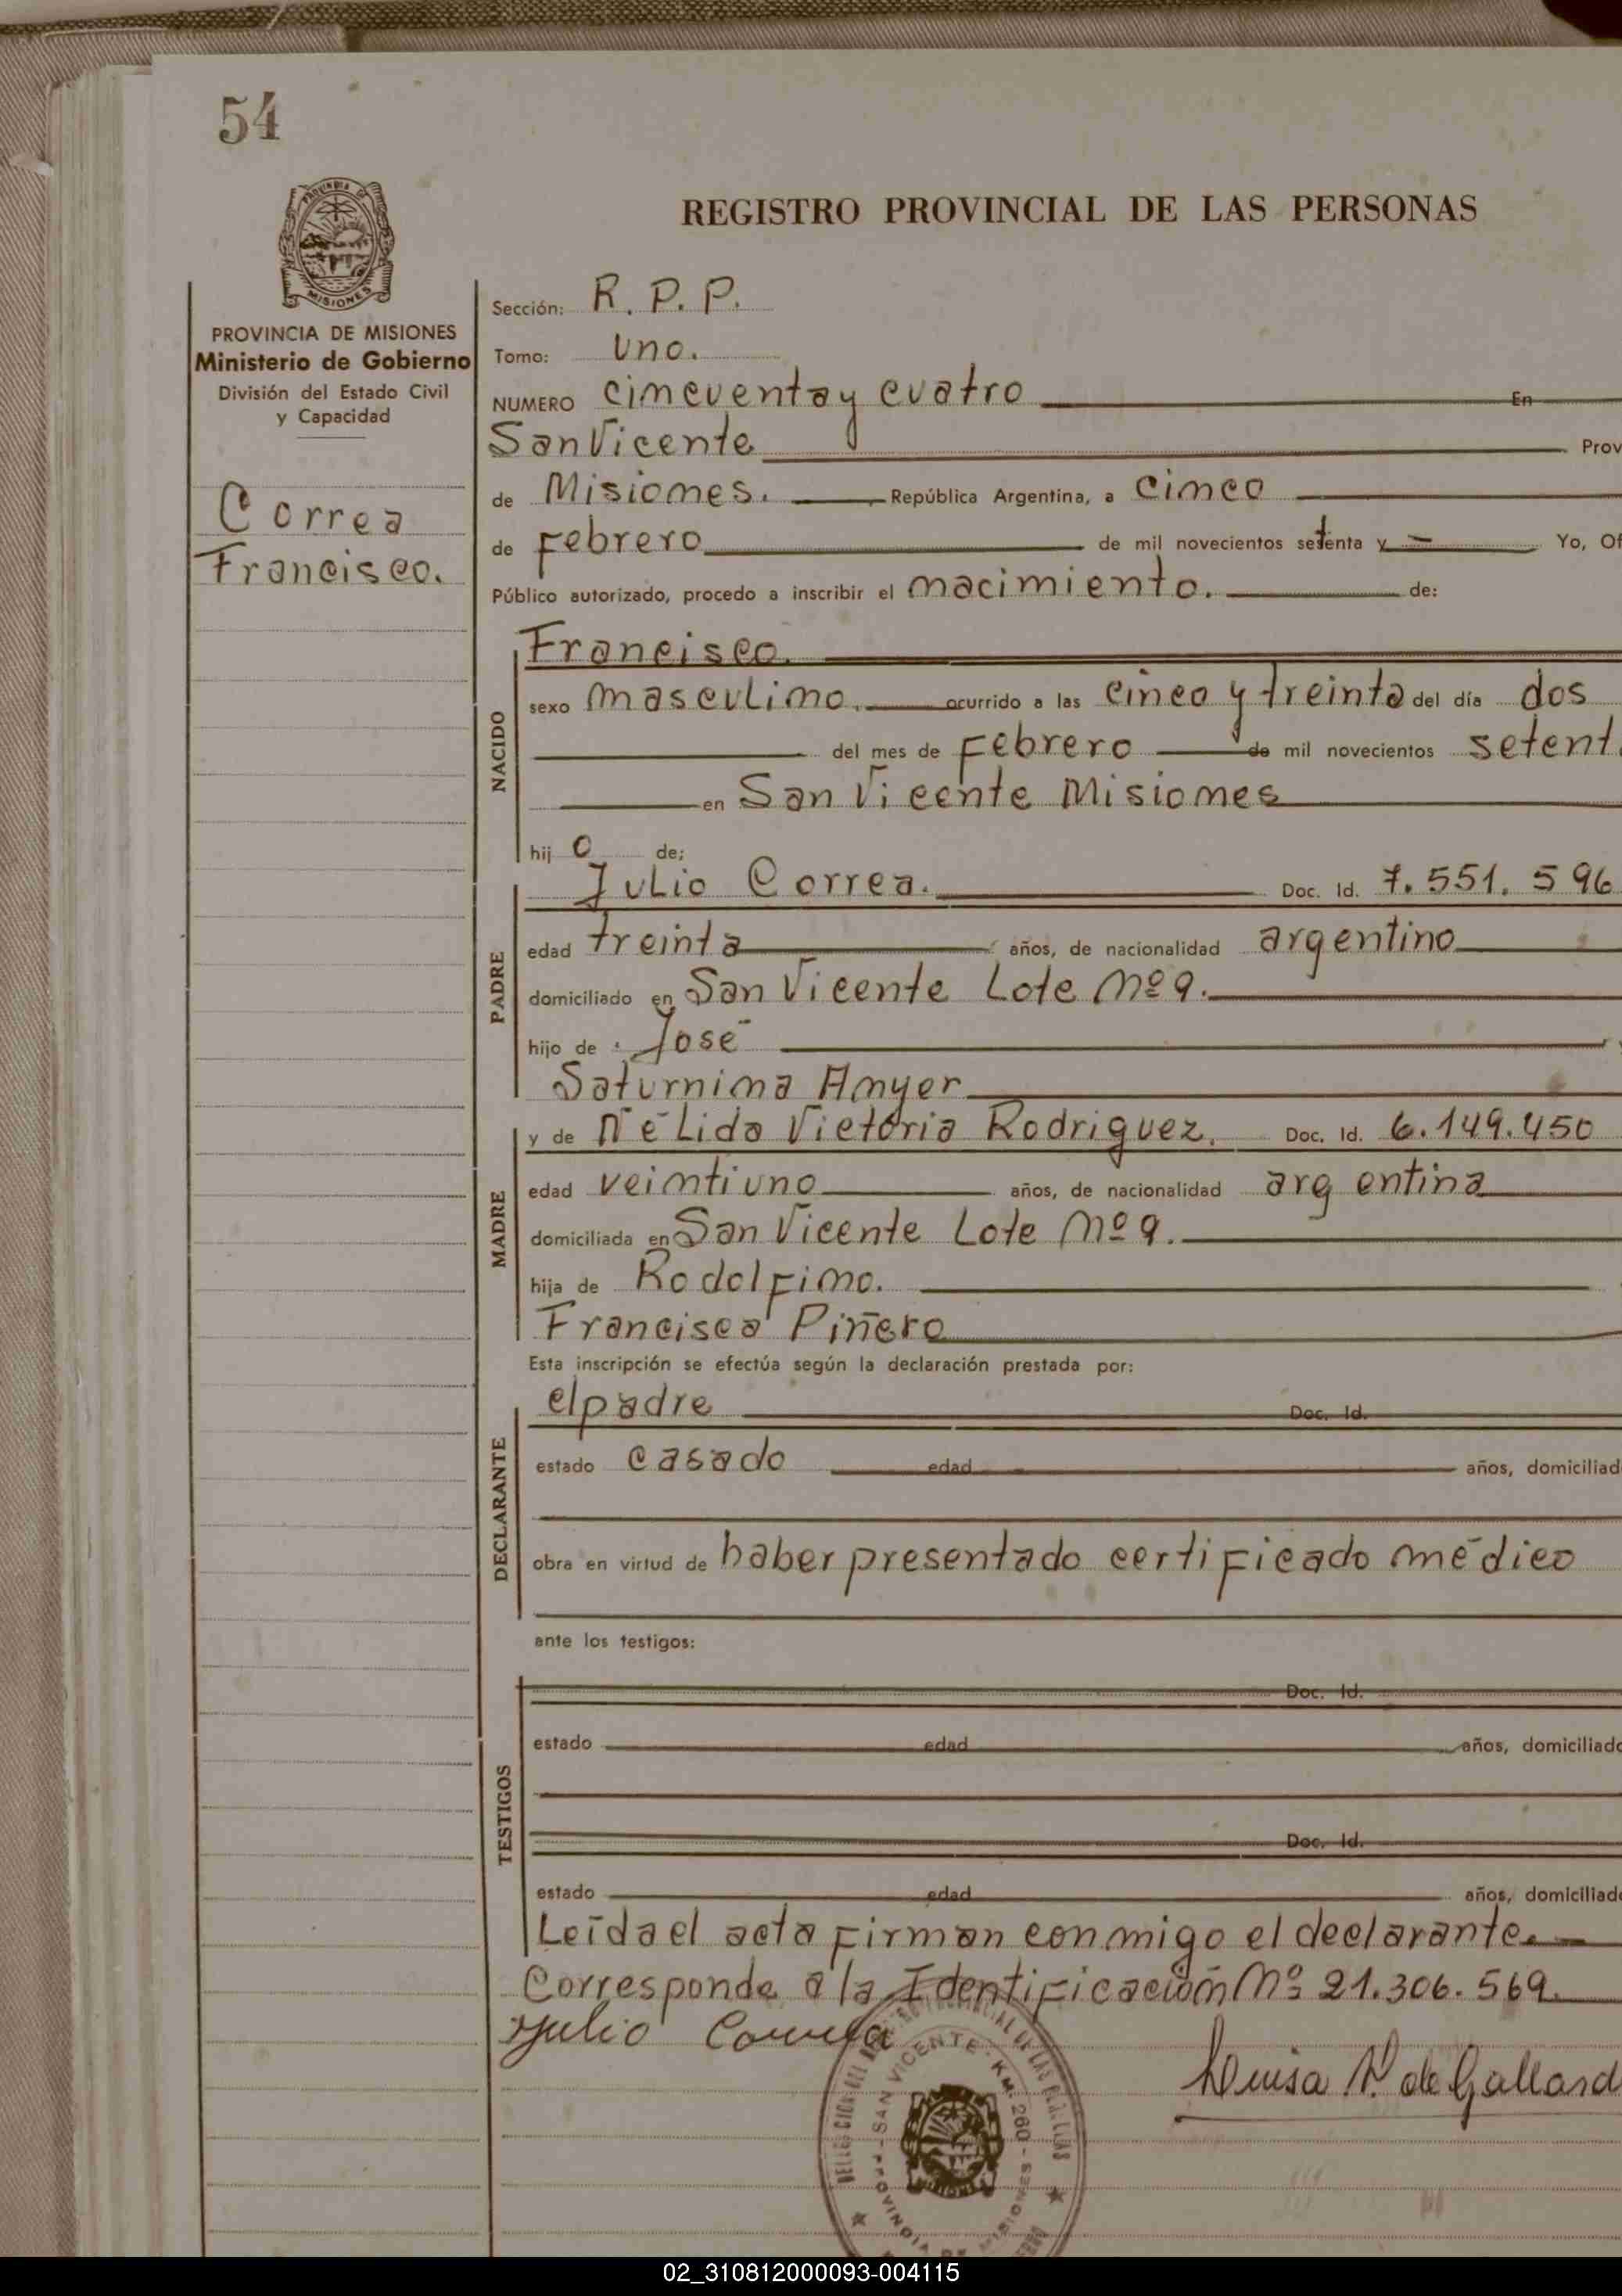 54
PROVINCIA DE MISIONES
Ministerio de Gobierno
División del Estado Civil
y Capacidad
Correa
Francisco.
REGISTRO PROVINCIAL DE LAS PERSONAS
Sección: R. P. P.
Tomo: Uno.
NUMERO cincuenta y cuatro En
San Vicente Prov
de Misiones. República Argentina, a cinco
de Febrero de mil novecientos setenta y — Yo, Of
Público autorizado, procedo a inscribir el nacimiento. de:
NACIDO
Francisco.
sexo masculino. ocurrido a las cinco y treinta del día dos
del mes de Febrero de mil novecientos setent
en San Vicente Misiones
hij o de;
PADRE
Julio Correa. Doc. Id. 7.551.596
edad treinta años, de nacionalidad argentino
domiciliado en San Vicente Lote Nº 9.
hijo de José
Saturnina Amyer
MADRE
y de Nélida Victoria Rodriguez. Doc. Id. 6.149.450
edad veintiuno años, de nacionalidad argentina
domiciliada en San Vicente Lote Nº 9.
hija de Rodolfino.
Francisca Piñero
Esta inscripción se efectúa según la declaración prestada por:
DECLARANTE
el padre Doc. Id.
estado casado edad años, domiciliad
obra en virtud de haber presentado certificado médico
ante los testigos:
TESTIGOS
Doc. Id.
estado edad años, domiciliado
Doc. Id.
estado edad años, domiciliado
Leída el acta firman conmigo el declarante.
Corresponde a la Identificación Nº 21.306.569.
Julio Correa
Luisa de Gallard
SAN VICENTE - KM. 260 - PROVINCIA DE MISIONES
MISIONES
02_310812000093-004115